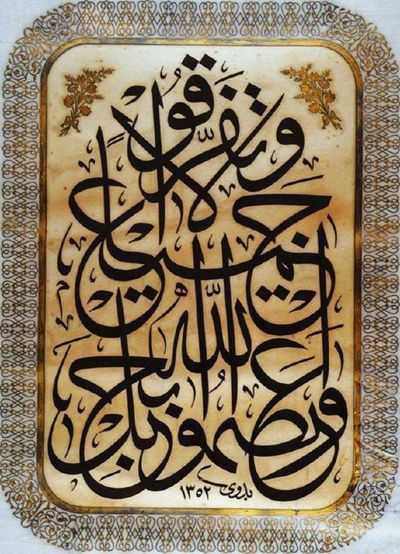 واعتصموا بحبل
الله جميعا
ولا تفرقوا
بدوي
١٣٥٢